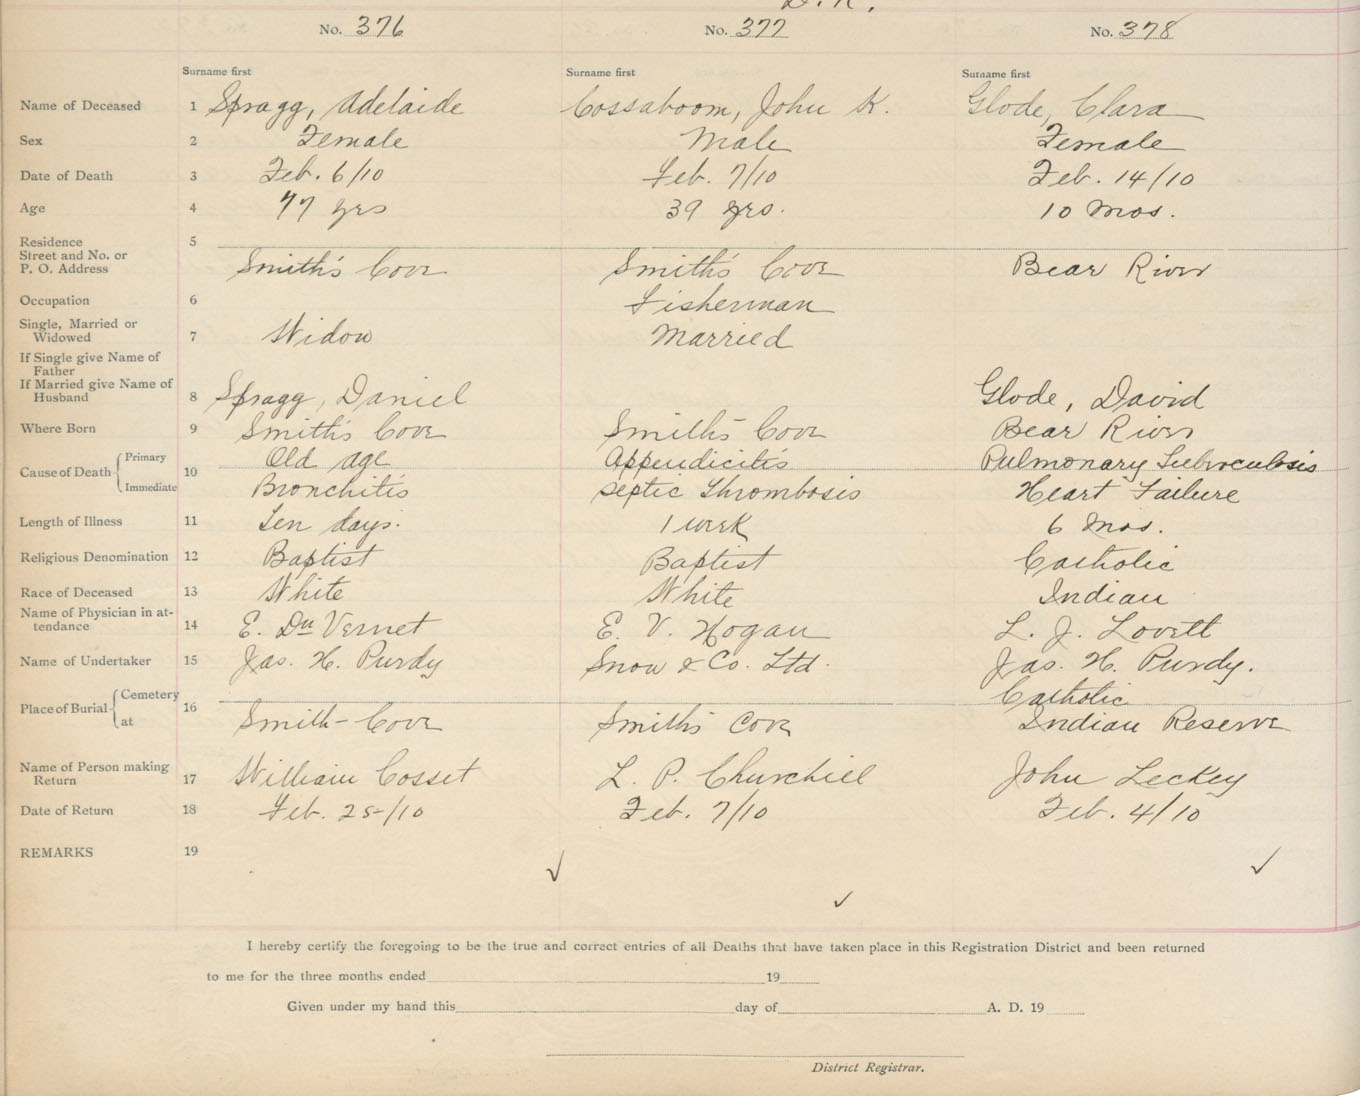 D. R.
No. 376 No. 377 No. 378
Surname first Surname first Surname first
Name of Deceased 1 Spragg, Adelaide Cossaboom, John K. Glode, Clara
Sex 2 Female Male Female
Date of Death 3 Feb. 6/10 Feb. 7/10 Feb. 14/10
Age 4 77 yrs 39 yrs. 10 Mos.
Residence 5
Street and No. or
P. O. Address Smith's Cove Smith's Cove Bear River
Occupation 6 Fisherman
Single, Married or
Widowed 7 Widow Married
If Single give Name of
Father
If Married give Name of
Husband 8 Spragg, Daniel Glode, David
Where Born 9 Smith's Cove Smith's Cove Bear River
Cause of Death 10 Primary Old age Appendicitis Pulmonary Tuberculosis
Immediate Bronchitis Septic Thrombosis Heart Failure
Length of Illness 11 Ten days. 1 week 6 Mos.
Religious Denomination 12 Baptist Baptist Catholic
Race of Deceased 13 White White Indian
Name of Physician in at-
tendance 14 E. Du Vernet E. V. Hogan L. J. Lovett
Name of Undertaker 15 Jas. H. Purdy Snow & Co. Ltd. Jas. H. Purdy.
Place of Burial 16 Cemetery Catholic
at Smith-Cove Smith's Cove Indian Reserve
Name of Person making
Return 17 William Cosset L. P. Churchill John Leckey
Date of Return 18 Feb. 25/10 Feb. 7/10 Feb. 4/10
REMARKS 19
I hereby certify the foregoing to be the true and correct entries of all Deaths that have taken place in this Registration District and been returned
to me for the three months ended 19
Given under my hand this day of A. D. 19
District Registrar.